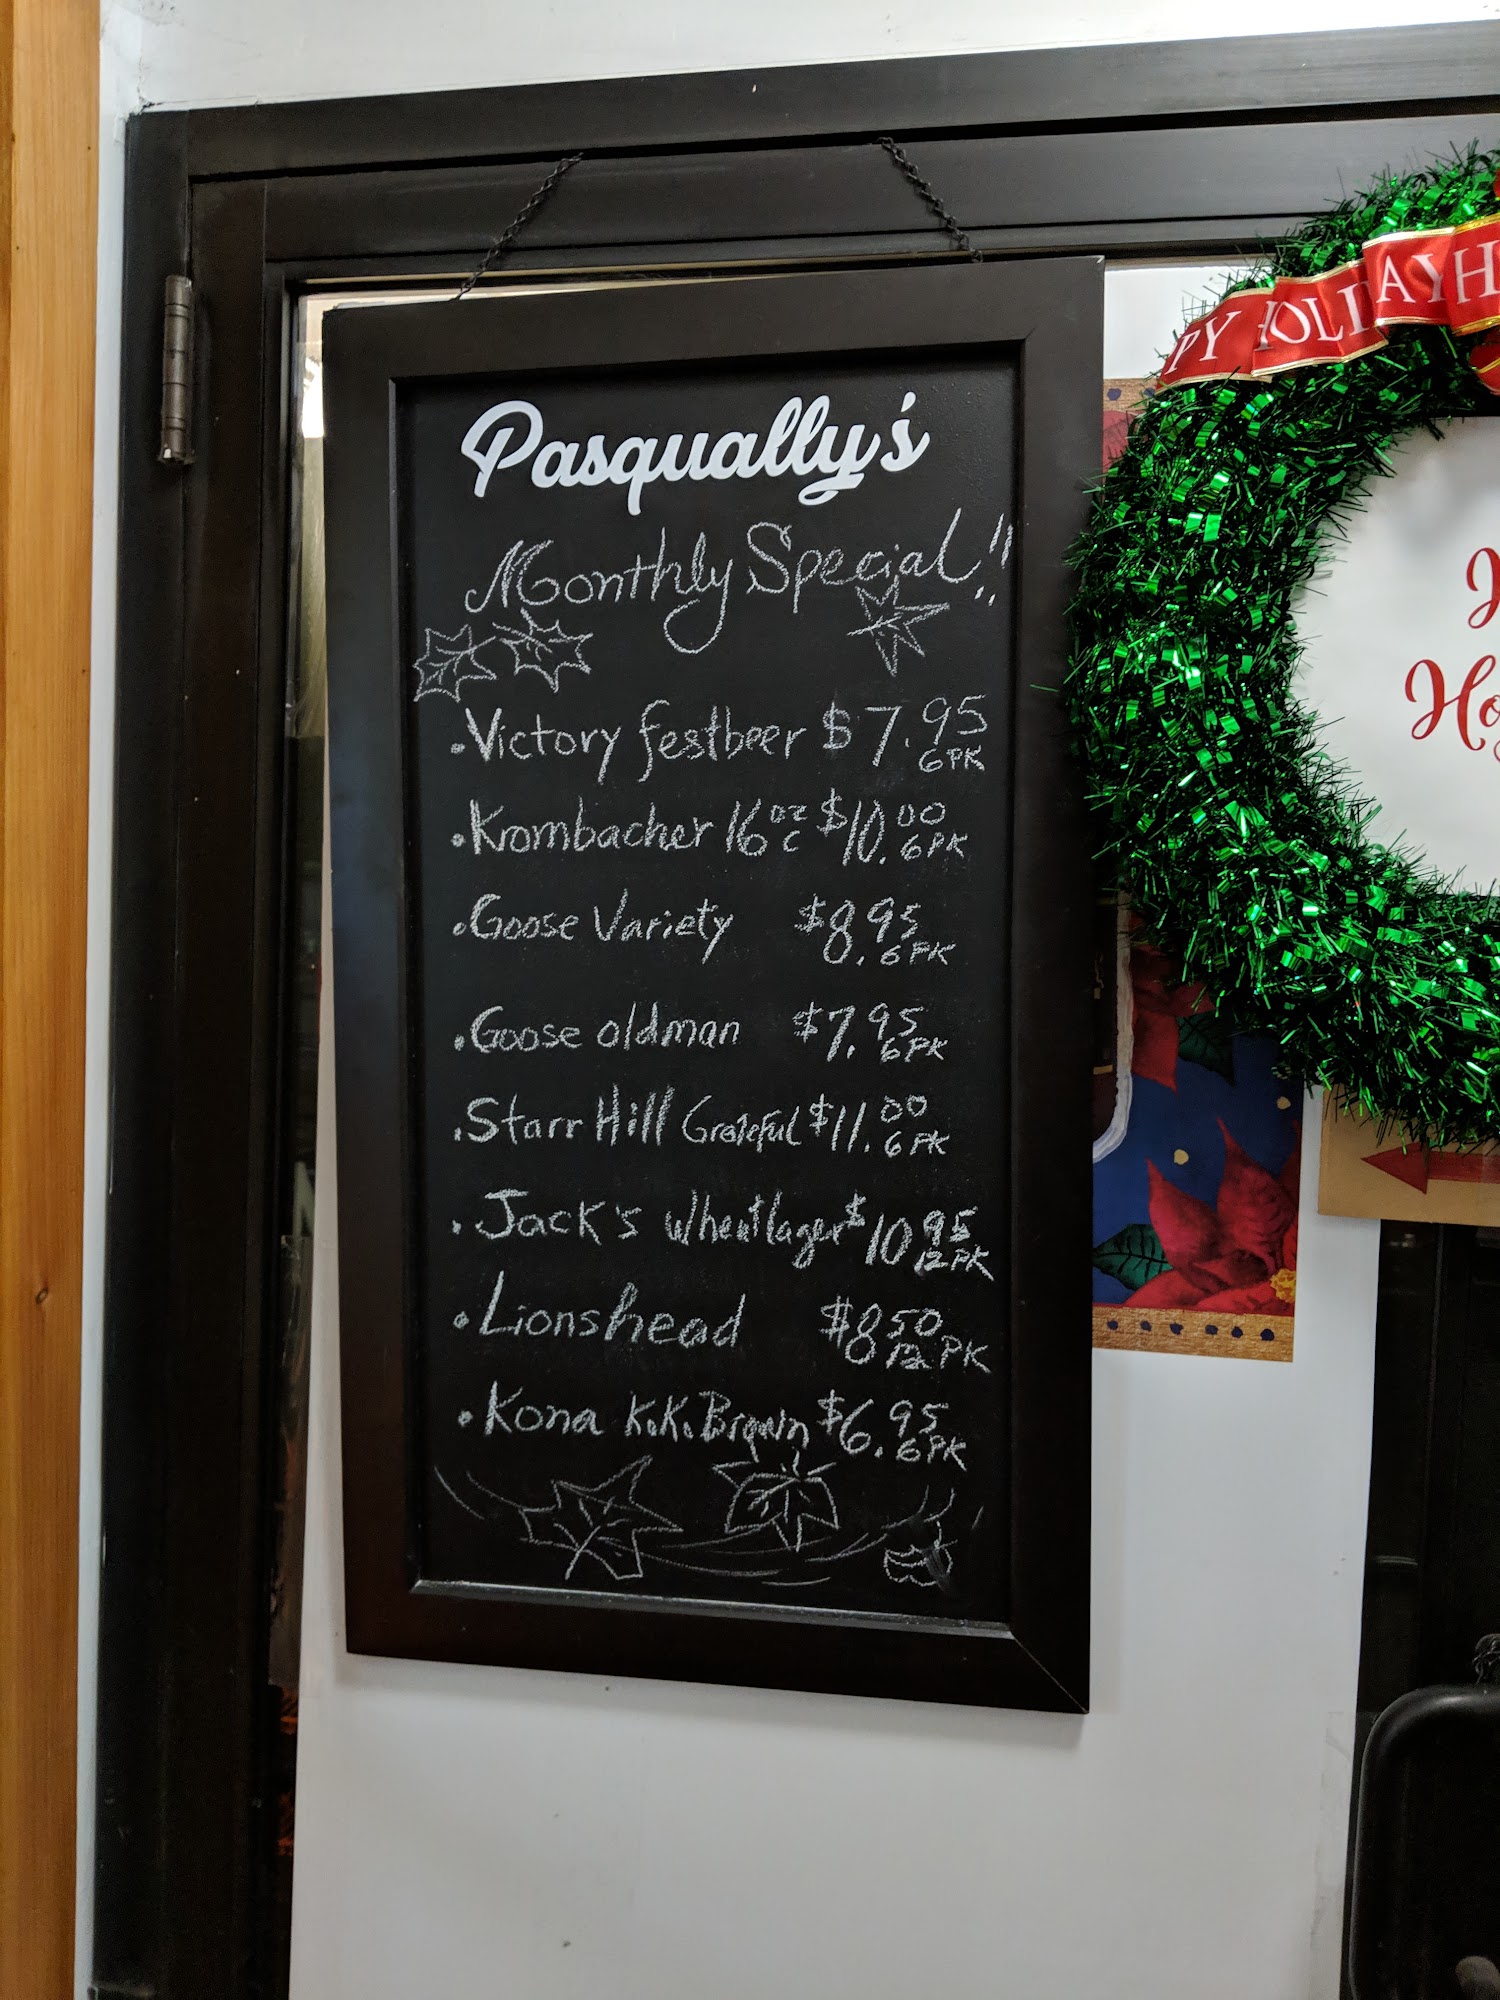 Pasqually's
Monthly Special!!
• Victory festbeer $7.95 6PK
• Krombacher 16 oz C $10.00 6PK
• Goose Variety $8.95 6PK
• Goose oldman $7.95 6PK
• Starr Hill Grateful $11.00 6PK
• Jack's wheat lager $10 95 12PK
• Lionshead $8 50 12 PK
• Kona K.K. Brown $6.95 6PK
PY HOLIDAY H
H
Ho